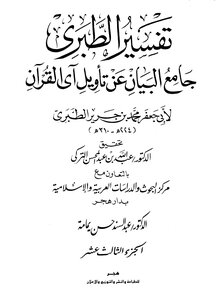 تفسير الطبري
جامع البيان عن تأويل آي القرآن
لأبي جعفر محمد بن جرير الطبري
(٢٢٤هـ - ٣١٠هـ)
تحقيق
الدكتور عبد الله بن عبد المحسن التركي
بالتعاون مع
مركز البحوث والدراسات العربية والإسلامية
بدار هجر
الدكتور عبد السند حسن يمامة
الجزء الثالث عشر
هجر
للطباعة والنشر والتوزيع والإعلان